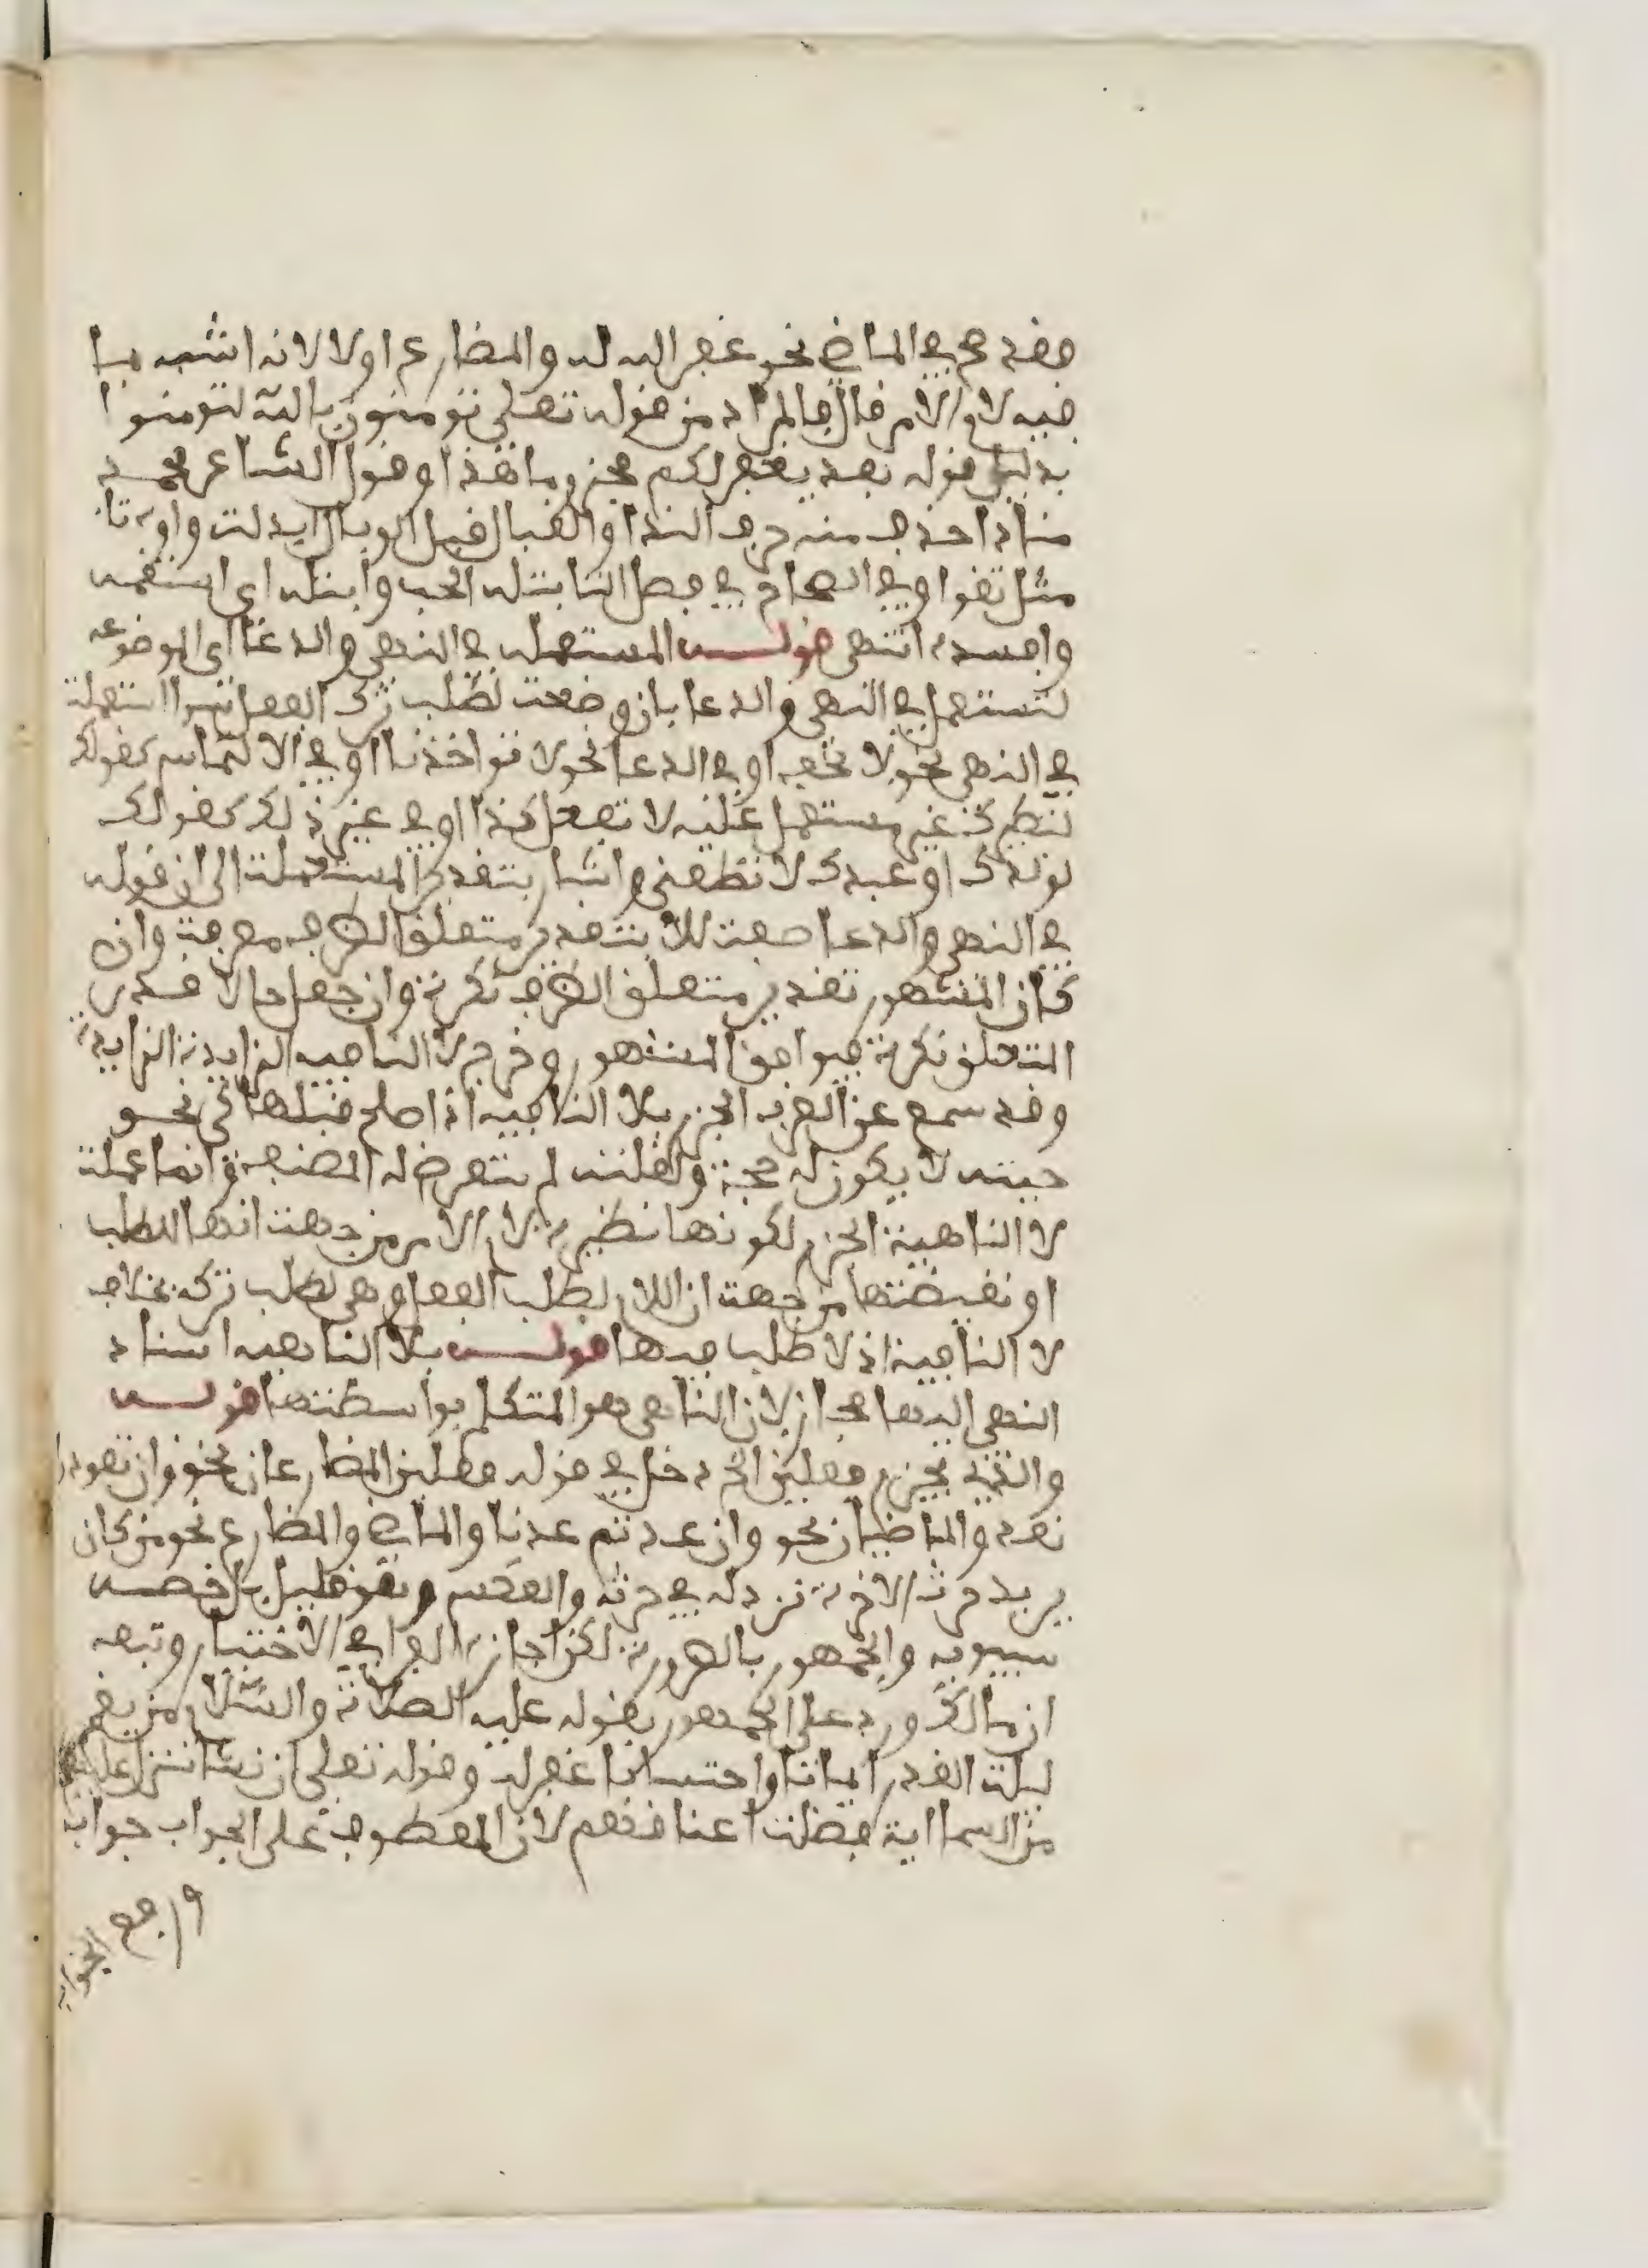 فقد صح في الماضي نحو غفر الله له والمضارع اولا لانه اشبه بما
فيه لام الامر فال فالمراد من قوله تعلى تومنون بالله لتومنوا
بدليل قوله بعد يغفر لكم مجزوما هذا وقول الشاعر محمد
مناد احذف منه حرف الندا والتبال قيل الوبال ابدلت واوه تا
مثل تقوا وفي القاموس في فصل التا بتله الحب وابتله اي اسقمه
وافسده انتهى قوله المستعمله في النهي والدعا اي الموضوعه
لتستعمل في النهي والدعا بان وضعت لطلب ترك الفعل استعملت
في النهي نحو لا تخف او في الدعا نحو لا تواخذنا او في الالتماس كقولك
لنظيرك غير مستعمل عليه لا تفعل كذا او في غير ذلك كقولك
لولدك او عبدك لا تطعني واشار بتقدير المستعملة الى ان قوله
في النهي والدعا صفت للا بتقدير متعلق الظرف معرفة وان
كان المشهور تقدير متعلق الظرف نكرة وان جعل حالا قدر
المتعلق نكرة فيوافق المشهور وخرج لا النافيه الزايدة
وقد سمع عن العرب الجزم بلا النافيه اذا صلح قبلها كي نحو
جيته لا يكون له حجة ولقلته لم يتعرض له المصنف وانما عملت
لا الناهية الجزم لكونها نظيرة لام الامر من جهت انها للطلب
او نقيضتها من جهت ان اللام لطلب الفعل وهي لطلب تركه بخلاف
لا النافية اذ لا طلب فيها قوله بلا الناهيه اسناد
النهي اليها مجاز لان الناهي هو المتكلم بواسطتها قوله
والذي يجزم فعلين الخ دخل في قوله فعلين المضارعان نحو وان تعودوا
نعد والماضيان نحو وان عدتم عدنا والماضي والمضارع نحو من كان
يريد حرث الاخرة نزد له في حرثه والعكس وهو قليل بل خصه
سيبويه والجمهور بالضرورة لكن اجازه الفرا في الاختيار وتبعه
ابن مالك ورد على الجمهور بقوله عليه الصلاة والسلام من يقم
ليلت القدر ايمانا واحتسابا غفر له وقوله تعلى ان نشا ننزل عليهم
من السما اية فظلت اعناقهم لان المعطوف على الجواب جواب